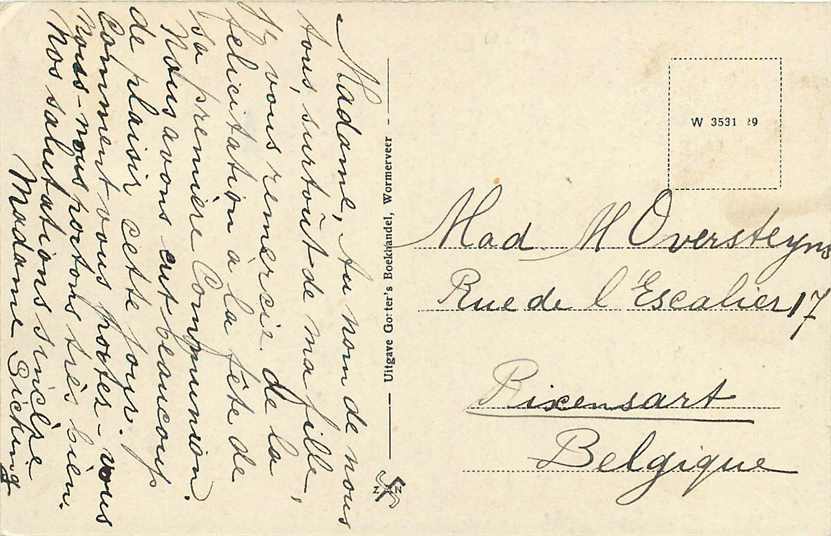 Madame, Au nom de nous
tous, surtout de ma fille,
J'vous remercie de la
felicitation à la fête de
sa première Communion.
Nous avons eut beaucoup
de plaisir cette jour.
Comment vous portes-vous
nous-nous portons très bien.
Nos salutations sincèse
Madame
Uitgave Gorter's Boekhandel, Wormerveer
W 3531 29
Mad M Oversteyns
Rue de l'Escalier 17
Rixensart
Belgique